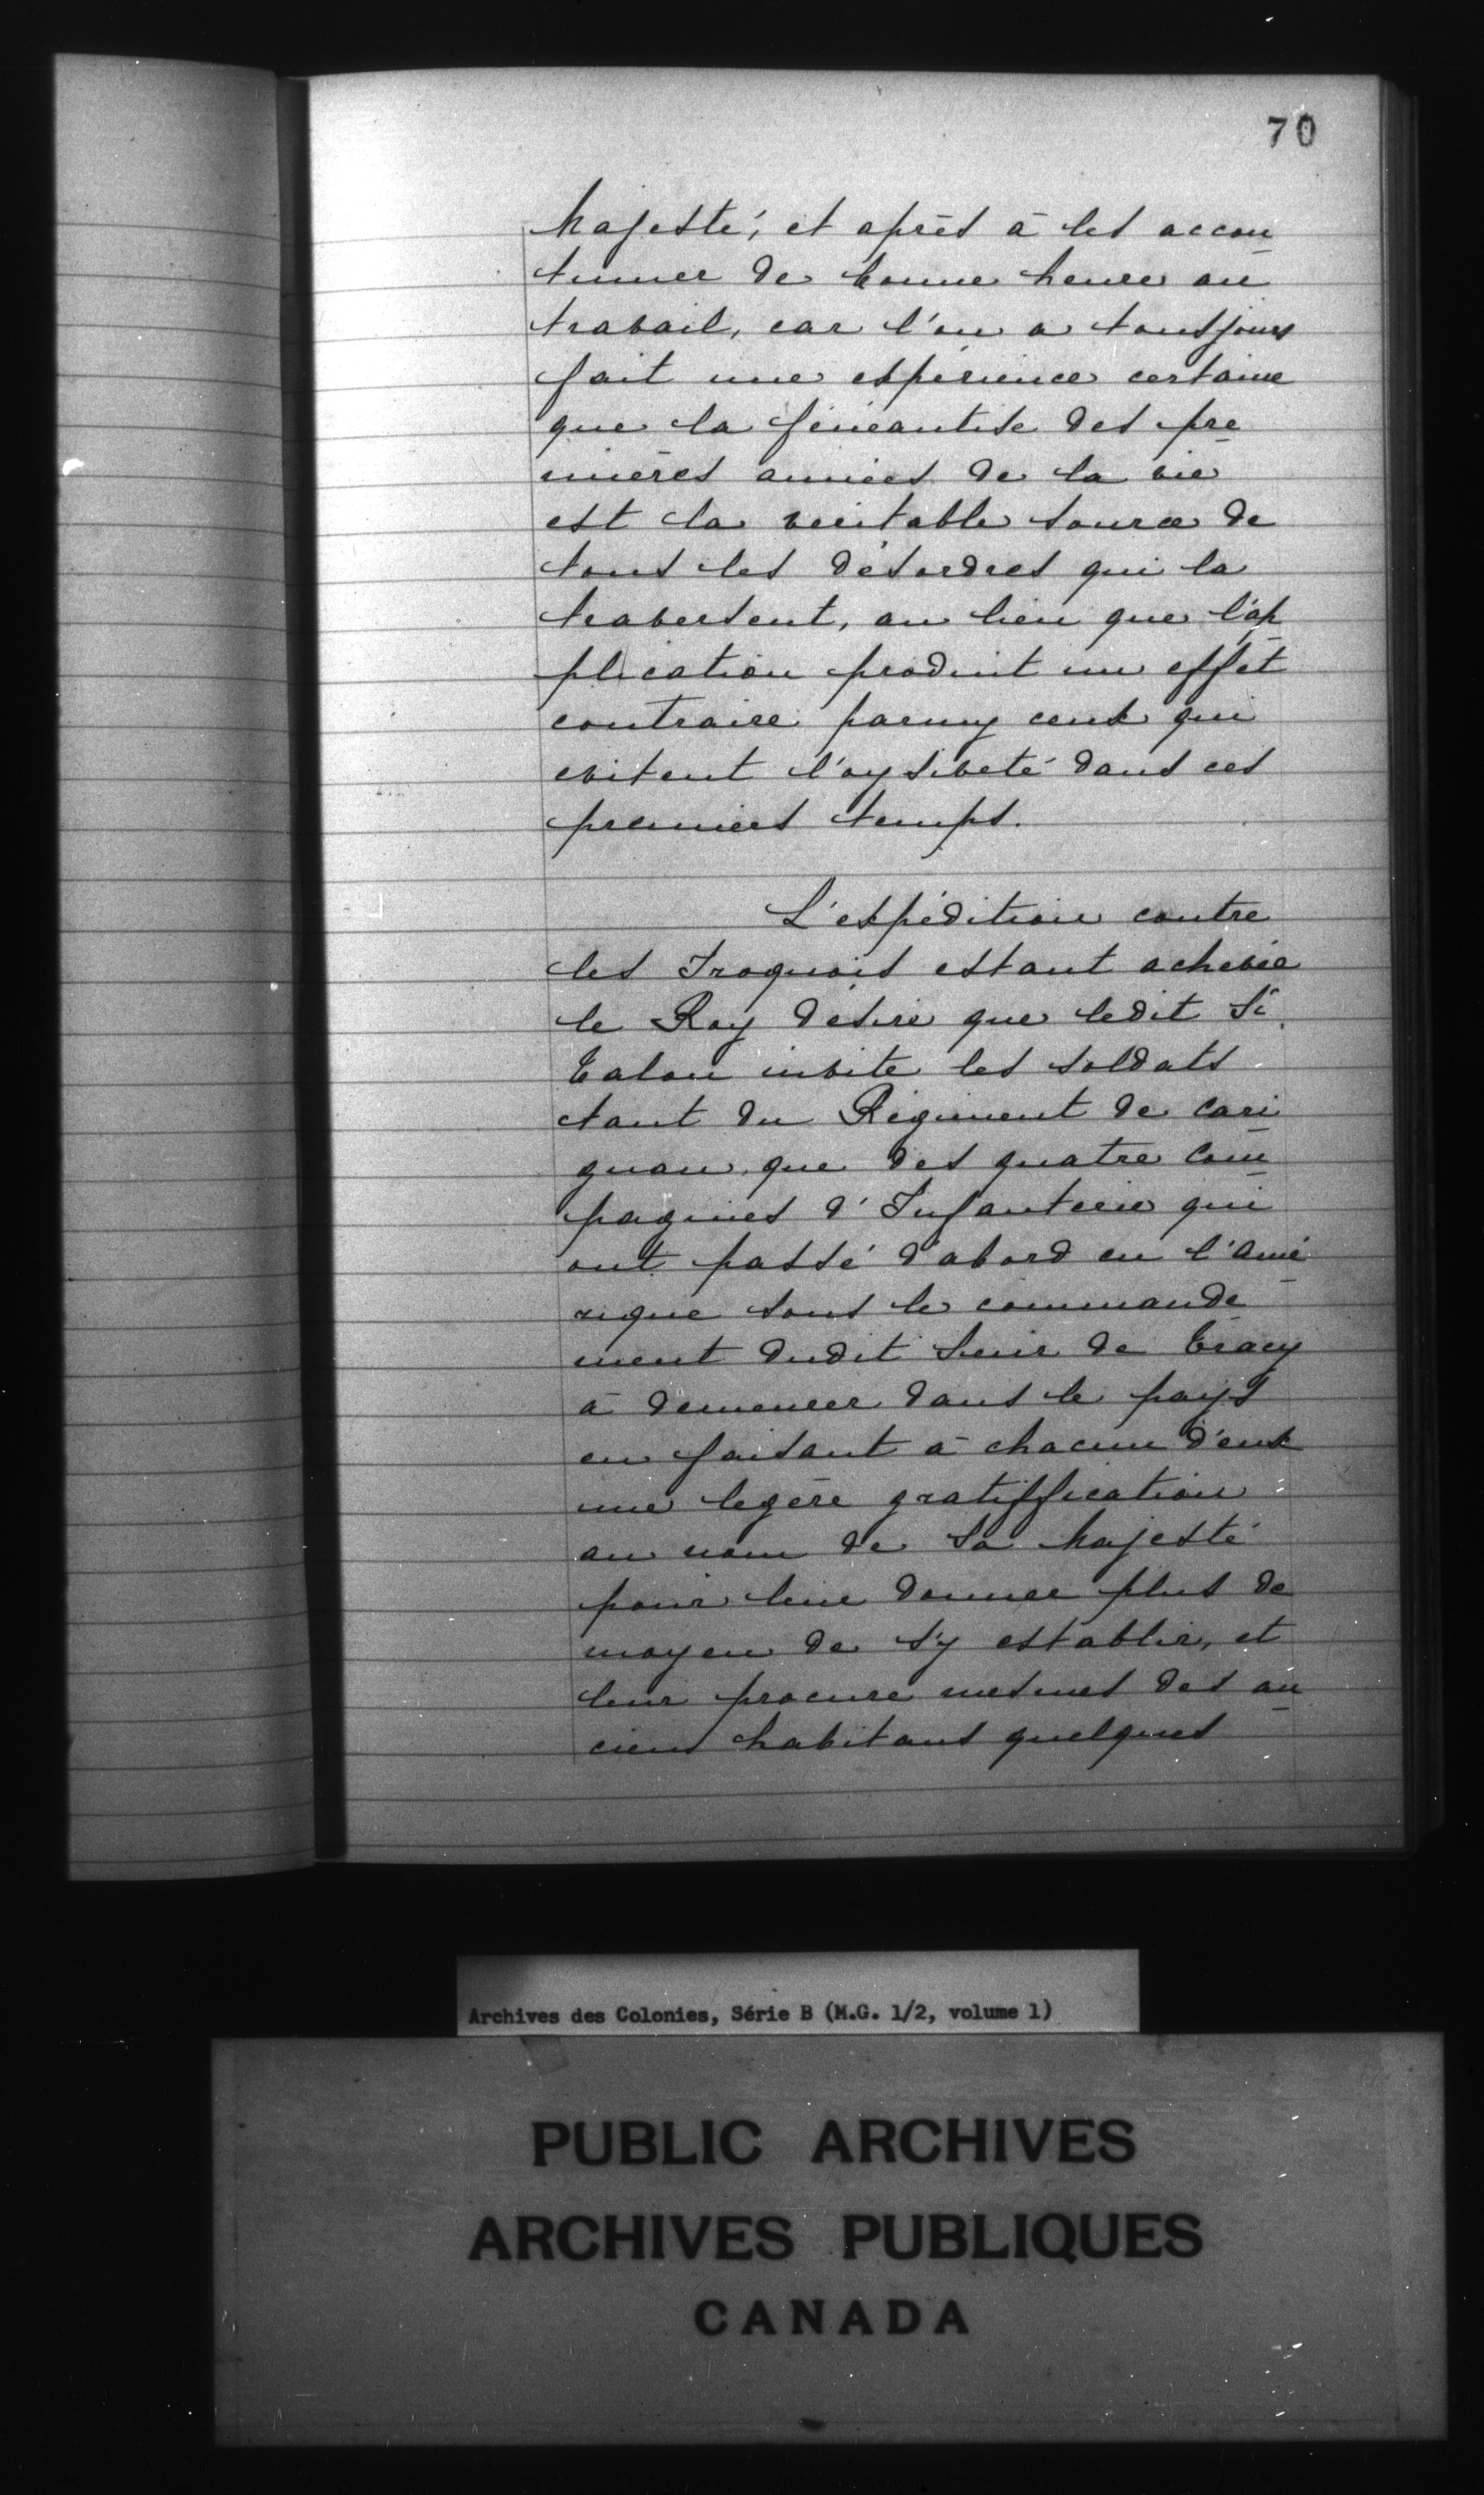 70
Majesté, et après à les accou
tumer de bonne heure au
travail, car l'on a tousjours
fait une expérience certaine
que la feneantise des pre
mières années de la vie
est la veritable source de
tous les désordres qui la
traversent, au lieu que l'ap
plication produit un effet
contraire parmy ceux qui
evitent l'oysiveté dans ces
premiers temps.
L'expédition contre
les Iroquois estant achevée
le Roy désire que ledit Sr.
Talon invite les soldats
tant du Régiment de Cari
gnan, que des quatre Com
pagnies d'Infanterie qui
ont passé d'abord en l'Amé
rique sous le commande
ment dudit Sieur de Tracy
à demeurer dans le pays
en faisant à chacun d'eux
une legère gratiffication
au nom de Sa Majesté
pour leur donner plus de
moyen de s'y establir, et
leur procure mesmes des an
ciens habitans quelques
Archives des Colonies, Série B (M.G. 1/2, volume 1)
PUBLIC ARCHIVES
ARCHIVES PUBLIQUES
CANADA